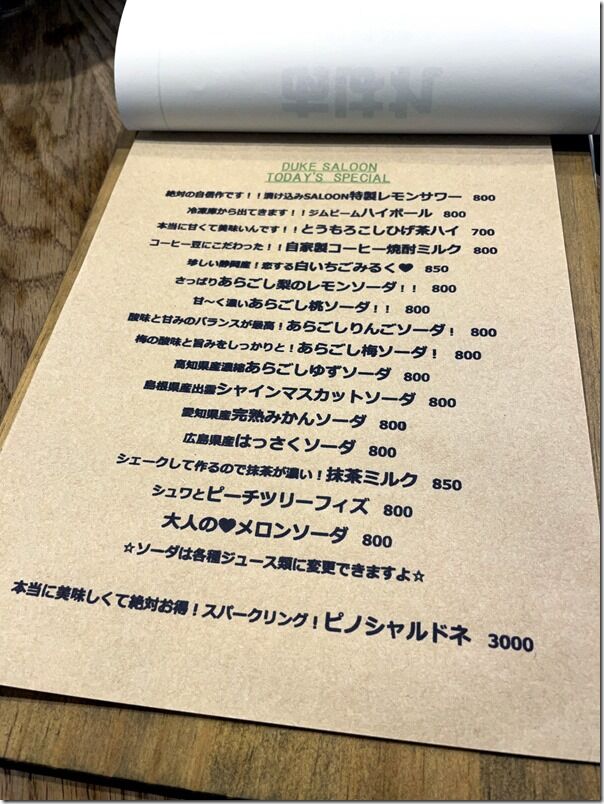 DUKE SALOON
TODAY'S SPECIAL
絶対の自信作です！！漬け込みSALOON特製レモンサワー 800
冷凍庫から出てきます！！ジムビームハイボール 800
本当に甘くて美味いんです！！とうもろこしひげ茶ハイ 700
コーヒー豆にこだわった！！自家製コーヒー焼酎ミルク 800
珍しい静岡産！恋する白いちごみるく♥ 850
さっぱりあらごし梨のレモンソーダ！！ 800
甘～く濃いあらごし桃ソーダ！！ 800
酸味と甘みのバランスが最高！あらごしりんごソーダ！ 800
梅の酸味と旨みをしっかりと！あらごし梅ソーダ！ 800
高知県産濃縮あらごしゆずソーダ 800
島根県産出雲シャインマスカットソーダ 800
愛知県産完熟みかんソーダ 800
広島県産はっさくソーダ 800
シェークして作るので抹茶が濃い！抹茶ミルク 850
シュワとピーチツリーフィズ 800
大人の♥メロンソーダ 800
☆ソーダは各種ジュース類に変更できますよ☆
本当に美味しくて絶対お得！スパークリング！ピノシャルドネ 3000